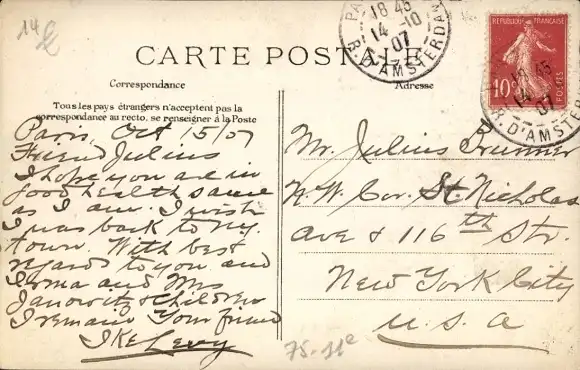 14 £
CARTE POSTALE
Correspondance
Tous les pays étrangers n'acceptent pas la
correspondance au recto, se renseigner à la Poste
Paris, Oct 15/07
Friend Julius
I hope you are in
good health same
as I am. I wish
I was back to N.Y.
town. With best
regards to you and
Irma and Mrs
Janowitz & children
I remain Your friend
IKE Levy
Adresse
Mr. Julius Brunner
N.W. Cor. St. Nicholas
Ave & 116th Str.
New York City
U.S.A
75-11e
18 45
14-10
07
R. D'AMSTERDAM
REPUBLIQUE FRANÇAISE
10c
POSTES
18 45
14
07
R. D'AMST